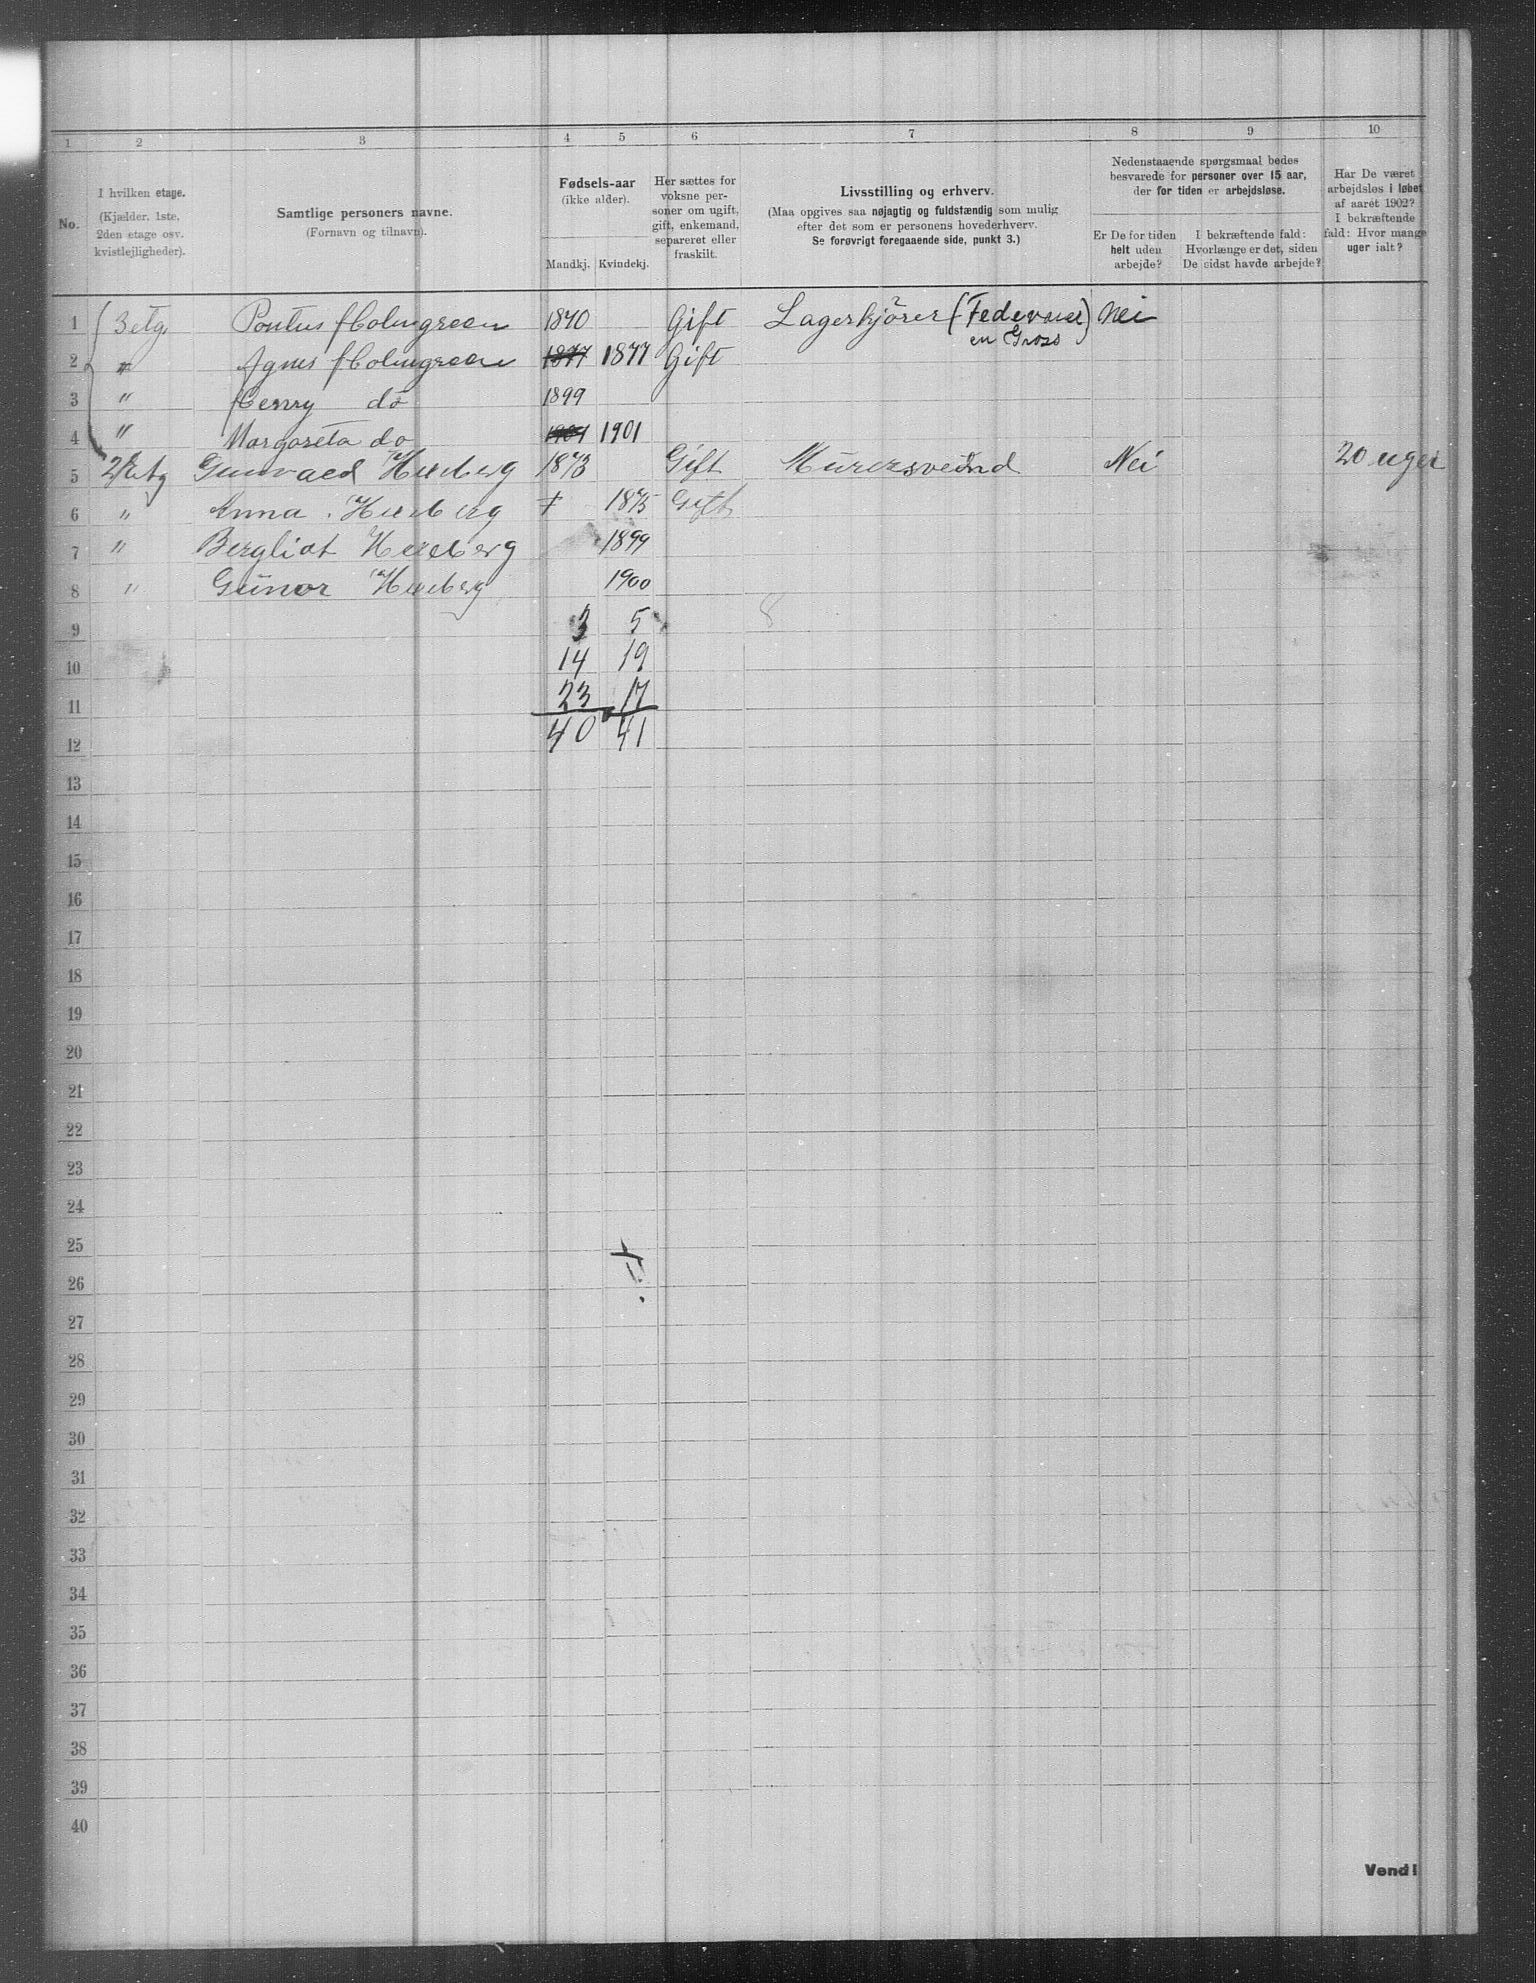 1 2 3 4 5 6 7 8 9 10
No.
I hvilken etage.
(Kjælder, 1ste,
2den etage osv.
kvistlejligheder).
Samtlige personers navne.
(Fornavn og tilnavn).
Fødsels-aar
(ikke alder).
Mandkj. Kvindekj.
Her sættes for
voksne per-
soner om ugift,
gift, enkemand,
separeret eller
fraskilt.
Livsstilling og erhverv.
(Maa opgives saa nøjagtig og fuldstændig som mulig
efter det som er personens hovederhverv.
Se forøvrigt foregaaende side, punkt 3.)
Nedenstaaende spørgsmaal bedes
besvarede for personer over 15 aar,
der for tiden er arbejdsløse.
Er De for tiden
helt uden
arbejde?
I bekræftende fald:
Hvorlænge er det, siden
De sidst havde arbejde?
Har De været
arbejdsløs i løbet
af aaret 1902?
I bekræftende
fald: Hvor mange
uger ialt?
1 3 etg. Pontus Holmgreen 1870 Gift Lagerkjører (Fedevarer) Nei
en Gross
2 " Agnes Holmgreen 1877 1877 Gift
3 " Henry do 1899
4 " Margareta do 1901 1901
5 2 Etg 1873 Gift Murersvend Nei 20 uger
6 " Anna 1875 Gift
7 " Bergliot 1899
8 " Gunvor 1900
9 3 5 8
10 14 19
11 23 17
12 40 41
13
14
15
16
17
18
19
20
21
22
23
24
25
26
27
28
29
30
31
32
33
34
35
36
37
38
39
40
Vend!